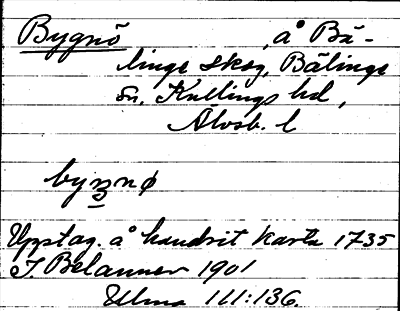 Bygnö , å Bä-
linge skog, Bälinge
sn, Kullings hd,
Älvsb. l
byŋnø
Upptag. å handrit karta 1735
J. Belanner 1901
Ulma 111:136.